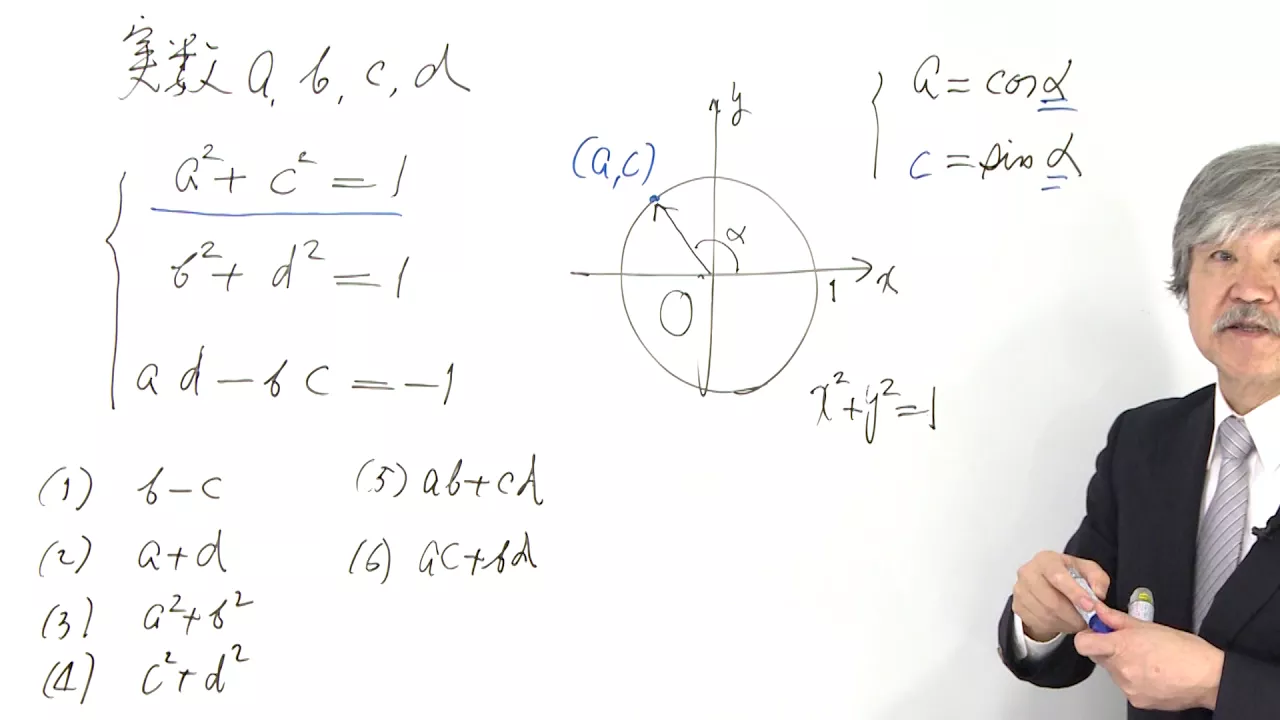 実数 a, b, c, d
a² + c² = 1
b² + d² = 1
ad - bc = -1
(1) b - c
(2) a + d
(3) a² + b²
(4) c² + d²
(5) ab + cd
(6) ac + bd
(a, c)
y
α
x
1
O
x² + y² = 1
a = cos α
c = sin α